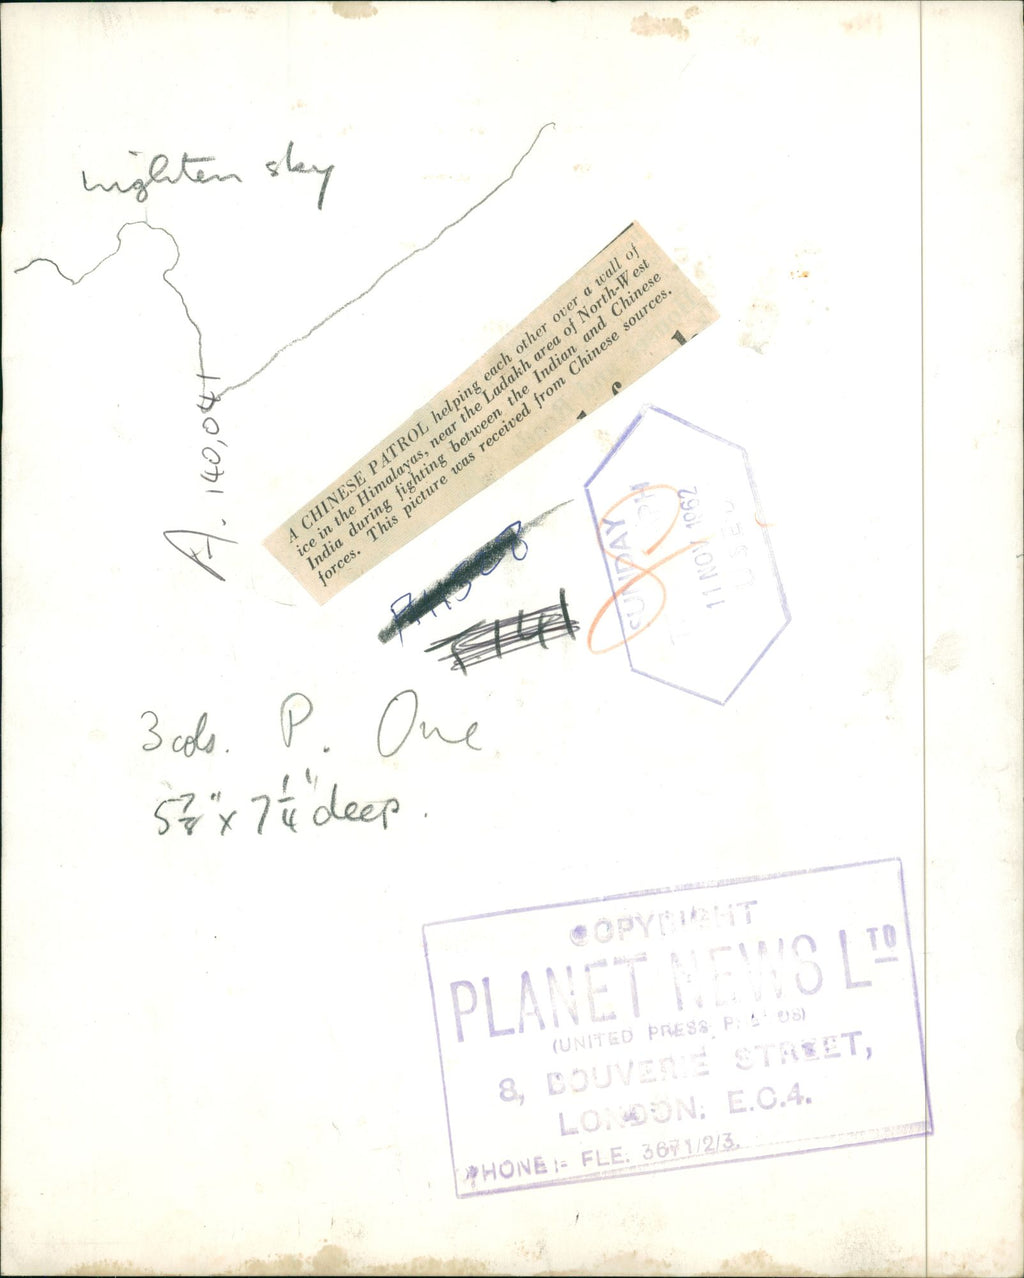 sky
A. 140,041
A CHINESE PATROL helping each other over a wall of
ice in the Himalayas, near the Ladakh area of North-West
India during fighting between the Indian and Chinese
forces. This picture was received from Chinese sources.
SUNDAY
11 NOV 1962
USED
3 cols. P. One
5 7/8" x 7 1/4" deep.
COPYRIGHT
PLANET NEWS LTD
(UNITED PRESS
8, BOUVERIE STREET,
LONDON. E.C.4.
PHONE:- FLE. 3671/2/3.